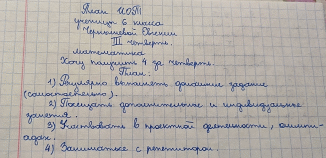 План ИОМ
ученицы 6 класса
Чернышевой Евгении
III четверть.
математика
Хочу получить 4 за четверть.
План:
1) Регулярно выполнять домашние задание
(самостоятельно).
2) Посещать дополнительное и индивидуальные
занятия.
3) Участвовать в проектной деятельности, олимпи-
адах.
4) Заниматься с репетитором.